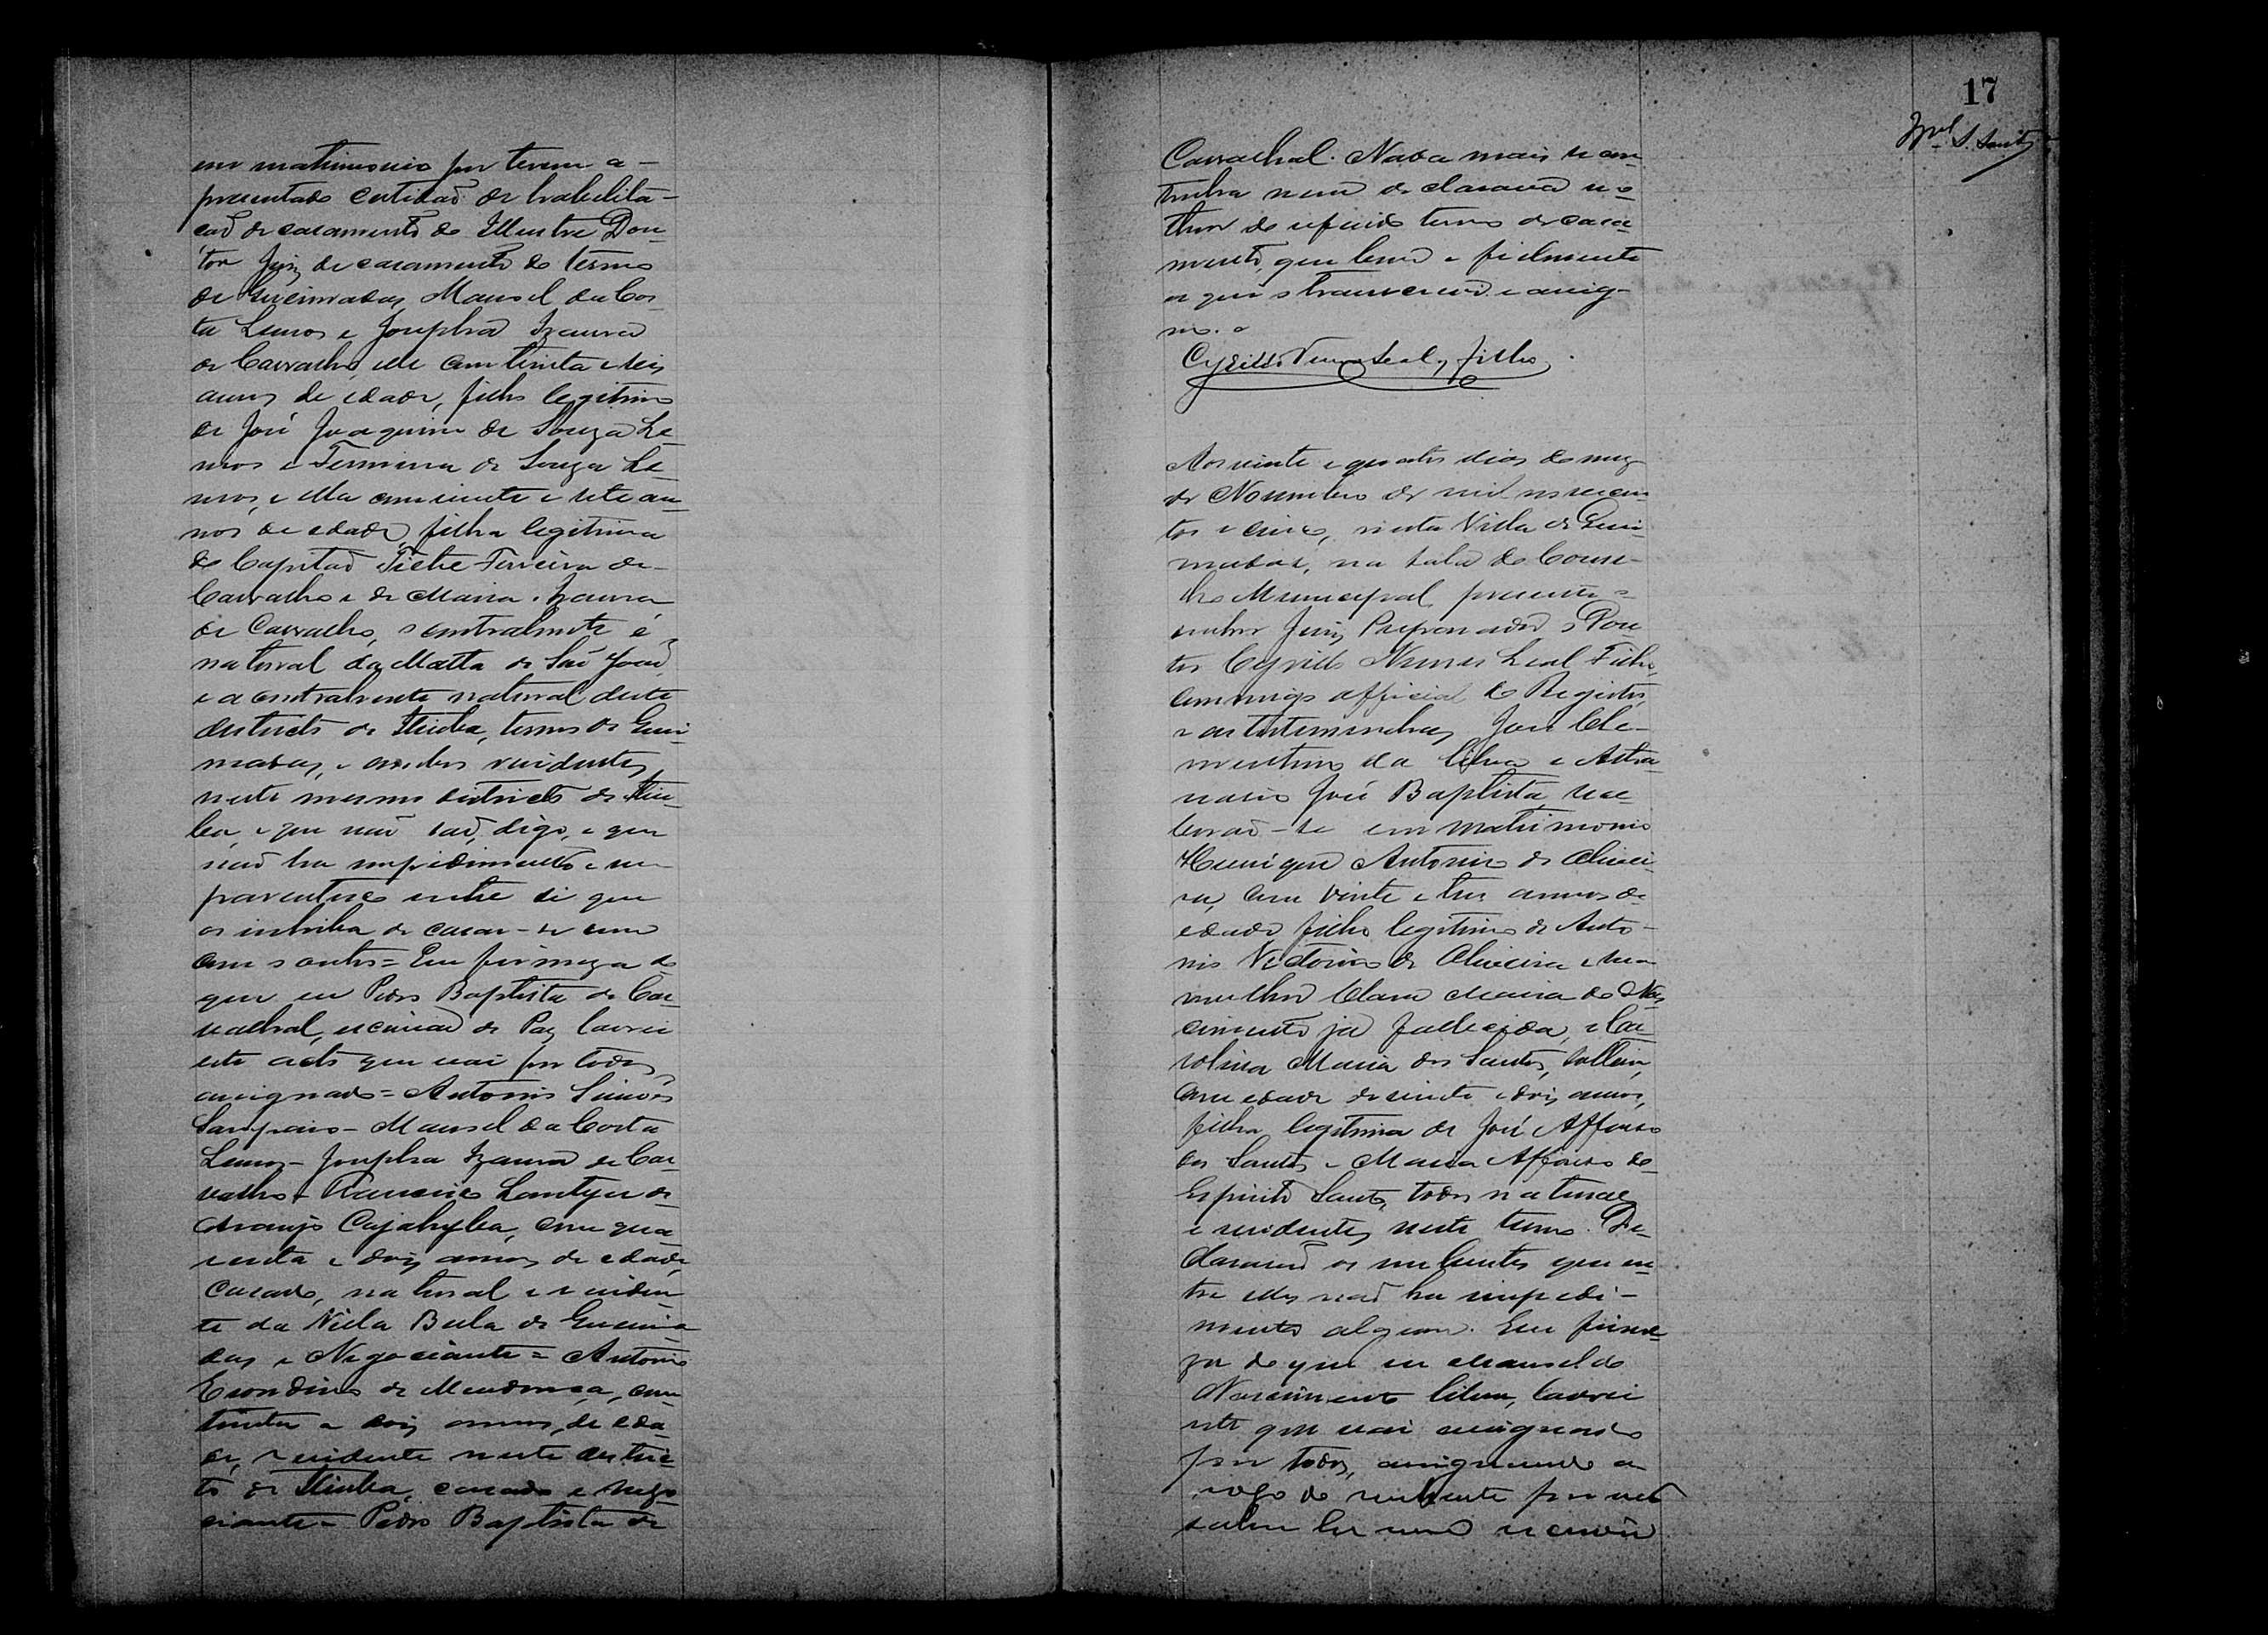 em matrimonio por terem a-
presentado certidaõ de habilita-
çaõ de casamento do Illustre Dou-
tor Juiz de casamento do termo
de Queimadas, Manoel da Cos-
ta Lemos e Josepha Izaura
de Carvalho, elle com trinta e seis
annos de edade, filho legitimo
de José Joaquim de Souza Le-
mos e Firmina de Souza Le-
mos, e ella com vinte e sete an-
nos de edade, filha legitima
do Capitaõ Ferreira de
Carvalho e de Maria Izaura
de Carvalho, o contrahente é
natural da Matta de Saõ Joaõ,
e a contrahente natural deste
districto de Itiuba, termo de Quei-
madas, e ambos residentes
neste mesmo districto de Itiu-
ba, e que naõ saõ, digo, e que
naõ ha impedimento e nem
parentesco entre si que
os inhiba de casar-se um
com o outro = Em firmeza do
que eu Pedro Baptista de Car-
valhal, escrivaõ de Paz lavrei
este acto que vai por todos
assignado = Antonio Simões
Sampaio - Manoel da Costa
Lemos - Josepha Izaura de Car-
valho - Francisco de
Araujo Cajahyba, com qua-
renta e dois annos de edade,
casado, natural e residen-
te da Villa Bella de Queima-
das e Negociante = Antonio
de Mendonça, com
trinta e dois annos de eda-
de, residente neste distric-
to de Itiuba, casado e nego-
ciante - Pedro Baptista de
17
Carvalhal. Nada mais se con-
tinha nem declarava no
theor do referido termo de casa-
mento, que bem e fielmente
aqui o transcrevi e assig-
no.
Cyrillo Nunes Leal, filho.
Aos vinte e quatro dias do mez
de Novembro de mil novecen-
tos e cinco, nesta Villa de Quei-
madas, na sala do Conse-
lho Municipal, presente o
senhor Juiz Preparador o Dou-
tor Cyrillo Nunes Leal Filho,
commigo official do Registro,
e as testemunhas, José Cle-
mentino da Silva e Atha-
nasio José Baptista, rece-
beraõ-se em matrimonio
Henrique Antonio de Olivei-
ra, com vinte e tres annos de
edade filho legitimo de Anto-
nio Victorino de Oliveira e sua
mulher Clara Maria do Nas-
cimento já fallecida, e Ca-
rolina Maria dos Santos, solteira,
com edade de vinte e dois annos,
filha legitima de José Affonso
dos Santos e Maria Affonso do
Espirito Santo, todos naturaes
e residentes neste termo. De-
clararaõ os nubentes que en-
tre elles naõ ha impedi-
mento algum. Em firme-
za do que eu Manoel do
Nascimento Lima, lavrei
este que vai assignado
por todos, assignando a
rogo do nubente por naõ
saber ler nem escrever